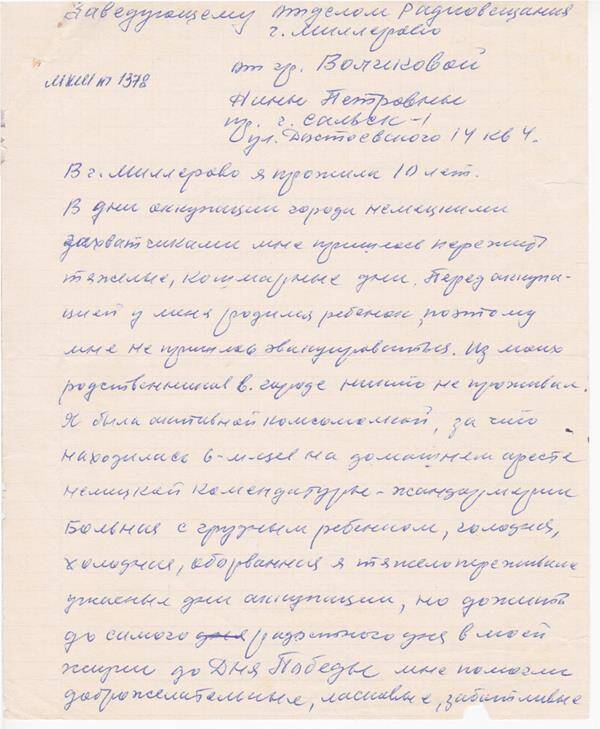 Заведующему отделом Радиовещания
г. Миллерово
от гр. Волчиковой
МКМ кп 1378
Нины Петровны
пр. г. Сальск-1
ул. Достоевского 14 кв 4.
В г. Миллерово я прожила 10 лет.
В дни оккупации города немецкими
захватчиками мне пришлось пережить
тяжелые, кошмарные дни. Перед оккупа-
цией у меня родился ребенок, поэтому
мне не пришлось эвакуироваться. Из моих
родственников в городе никто не проживал.
Я была активной комсомолкой, за что
находилась 6-м-цев на домашнем аресте
немецкой комендатуры-жандармерии
Больная с грудным ребенком, голодная,
холодная, оборванная я тяжело переживала
ужасные дни оккупации, но дожить
до самого дня радостного дня в моей
жизни до Дня Победы мне помогли
доброжелательные, ласковые, заботливые